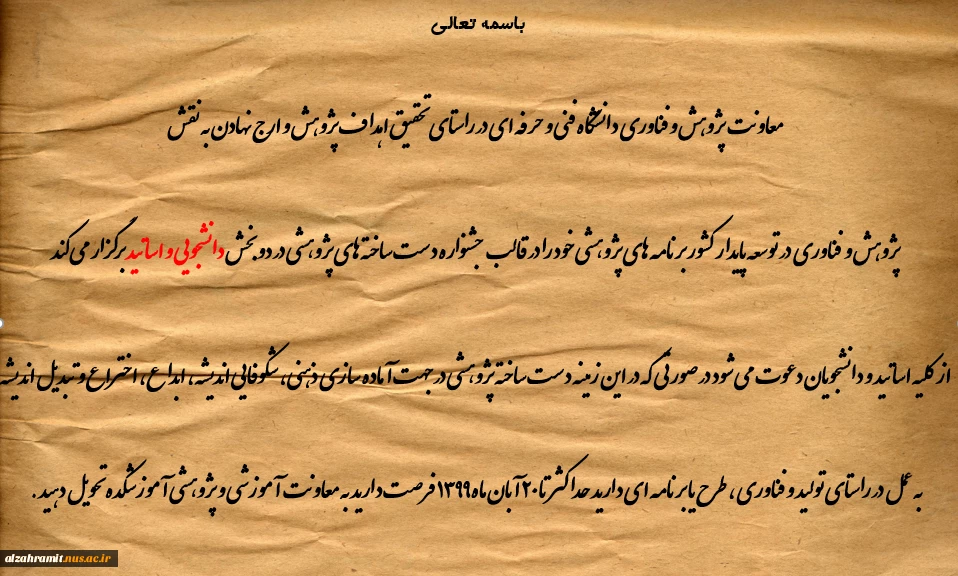 باسمه تعالی
معاونت پژوهش و فناوری دانشگاه فنی و حرفه ای در راستای تحقیق اهداف پژوهش و ارج نهادن به نقش
پژوهش و فناوری در توسعه پایدار کشور برنامه های پژوهشی خود را در قالب جشنواره دست ساخته های پژوهشی در دو بخش دانشجویی و اساتید برگزار می کند
از کلیه اساتید و دانشجویان دعوت می شود در صورتی که در این زمینه دست ساخته پژوهشی در جهت آماده سازی ذهنی، شکوفایی اندیشه، ابداع، اختراع و تبدیل اندیشه
به عمل در راستای تولید و فناوری، طرح یا برنامه ای دارید حداکثر تا ۲۰ آبان ماه ۱۳۹۹ فرصت دارید به معاونت آموزشی و پژوهشی آموزشکده تحویل دهید.
alzahramit.nus.ac.ir